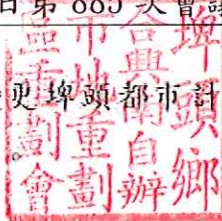 日第 885 次會議
更埤頭都市計
。
埤頭鄉
合興南自辦
市地重劃
區重劃會